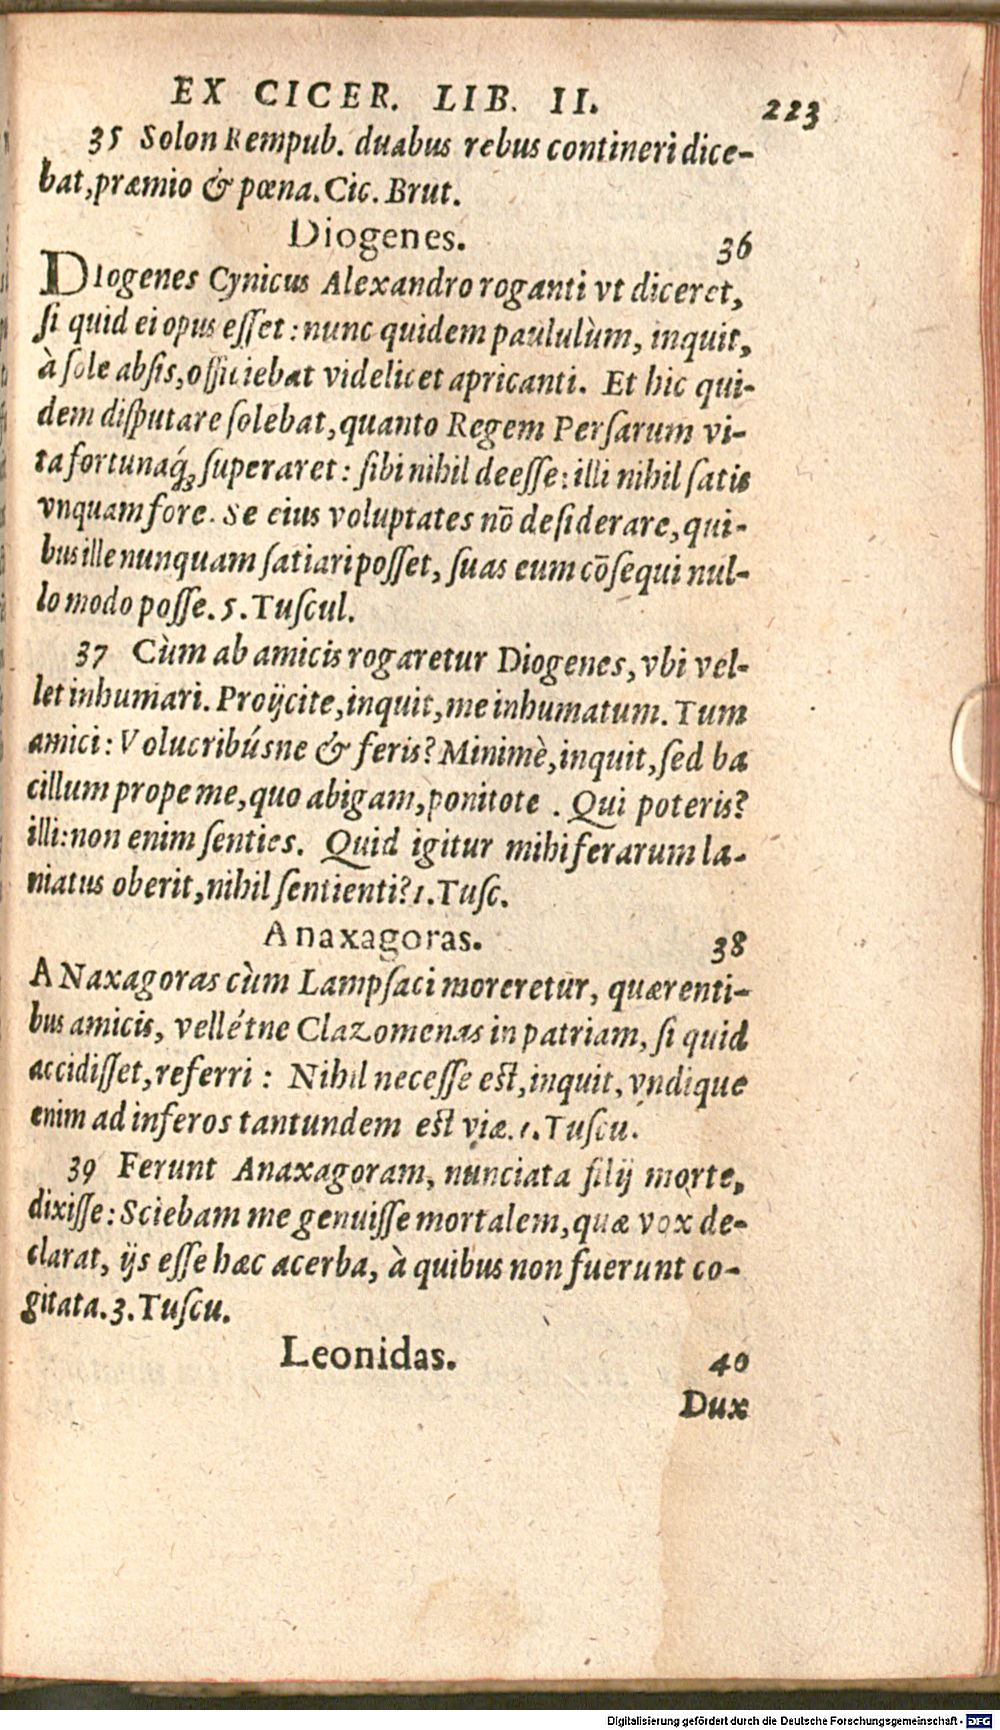 EX CICER. LIB. II. 223
35 Solon Rempub. duabus rebus contineri dice-
bat, præmio & pœna. Cic. Brut.
Diogenes. 36
DIogenes Cynicus Alexandro roganti vt diceret,
ſi quid ei opus eſſet : nunc quidem paululùm, inquit,
à ſole absis, officiebat videlicet apricanti. Et hic qui-
dem diſputare ſolebat, quanto Regem Perſarum vi-
ta fortunaq́ꝫ ſuperaret : ſibi nihil deeſſe : illi nihil ſatis
vnquam fore. Se eius voluptates nō deſiderare, qui-
bus ille nunquam ſatiari poſſet, ſuas eum cōſequi nul-
lo modo poſſe. 5. Tuſcul.
37 Cùm ab amicis rogaretur Diogenes, vbi vel-
let inhumari. Proijcite, inquit, me inhumatum. Tum
amici : Volucribúsne & feris? Minimè, inquit, ſed ba
cillum prope me, quo abigam, ponitote . Qui poteris?
illi : non enim ſenties. Quid igitur mihi ferarum la-
niatus oberit, nihil ſentienti? 1. Tuſc.
Anaxagoras. 38
ANaxagoras cùm Lampſaci moreretur, quærenti-
bus amicis, vellétne Clazomenas in patriam, ſi quid
accidiſſet, referri : Nihil neceſſe eſt, inquit, vndique
enim ad inferos tantundem eſt viæ. 1. Tuſcu.
39 Ferunt Anaxagoram, nunciata filij morte,
dixiſſe : Sciebam me genuiſſe mortalem, quæ vox de-
clarat, ijs eſſe hæc acerba, à quibus non fuerunt co-
gitata. 3. Tuſcu.
Leonidas. 40
Dux
Digitalisierung gefördert durch die Deutsche Forschungsgemeinschaft - DFG